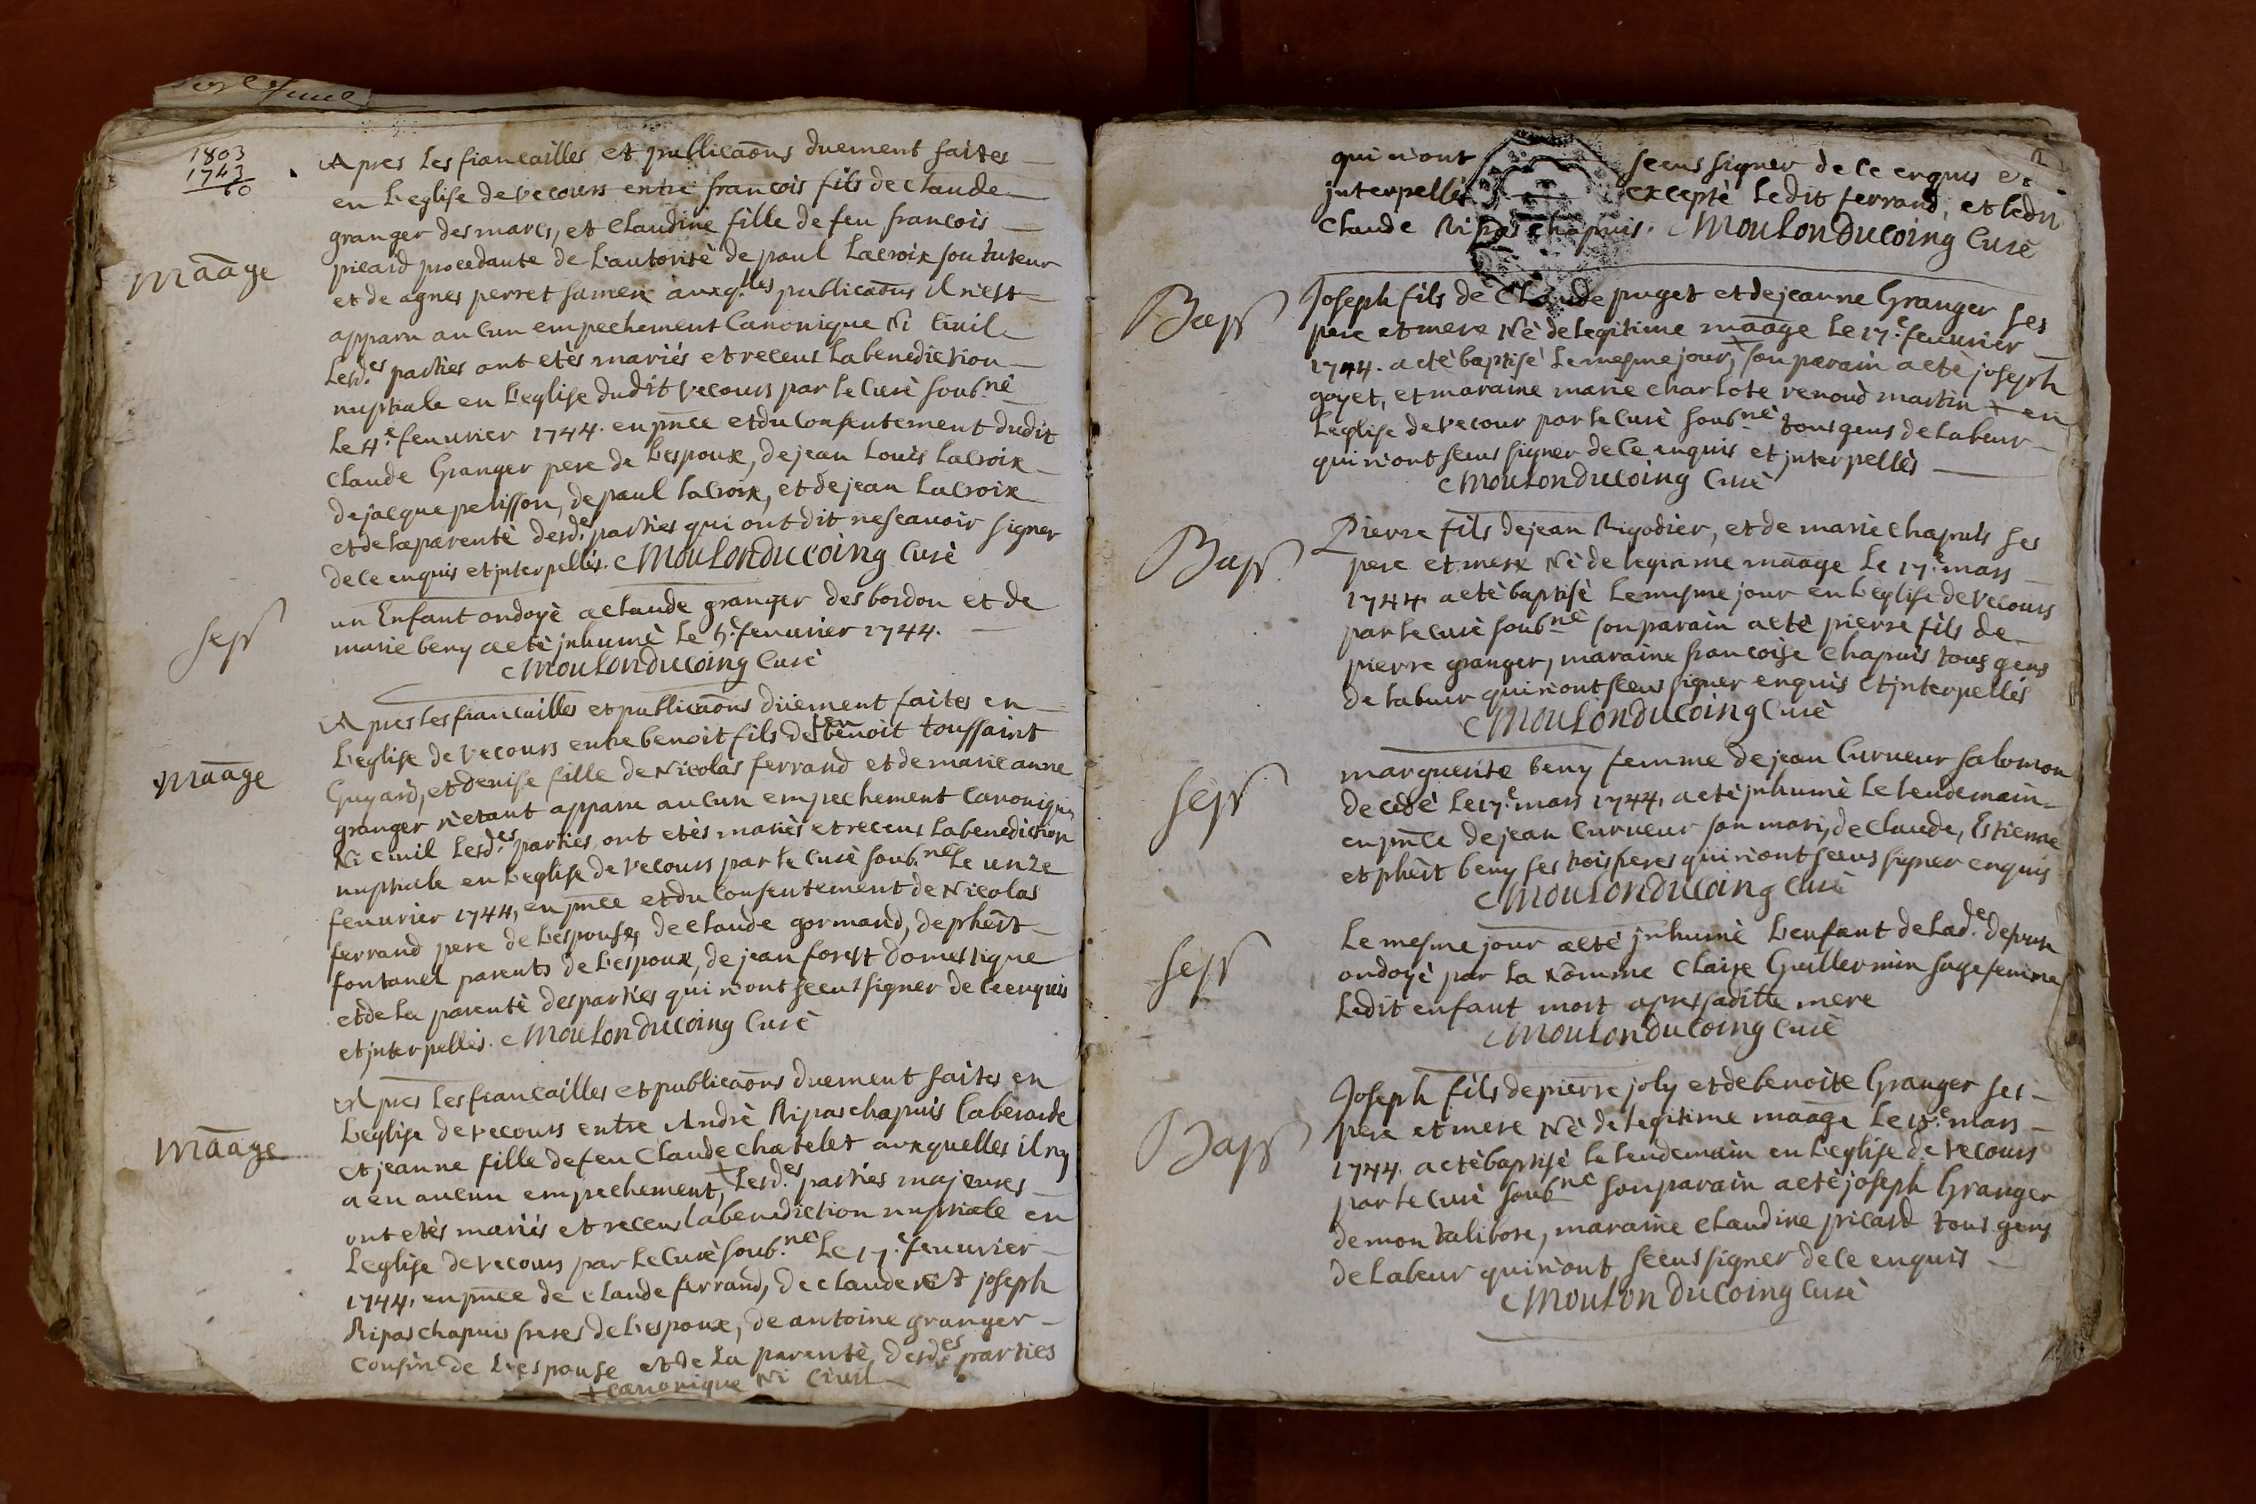 1803
1743
60
Apres Les fiancailles et publicaõns duement faites
en L'eglise de vecours entre francois fils de Claude
granger des marcs, et Claudine fille de feu francois
Maãge
picard procedante de L'autoritè de paul Lacroix son tuteur
et de agnes perret sa mere auxq.lles publicaõns il n'est
apparu aucun empechement Canonique Ni Civil
Lesd.es parties ont etès mariés et receus La benediction
nuptiale en L'eglise dudit vecours par le Curè soub.nè
Le 4.e fevurier 1744. en pñce et du Consentement dudit
Claude Granger pere de L'espoux, de jean Louis Lacroix
de jacque pelisson, de paul lacroix, et de jean Lacroix
et de la parentè desd.e parties qui ont dit ne scavoir signer
de ce enquis et jnterpellès. Moulonducoing Curè
sepr
un Enfant ondoyè a Claude granger des bordon et de
marie beny a etè jnhumè le 5.e fevurier 1744.
Moulonducoing Curè
Apres Les fiancailles et publicaõns düement faites en
L'eglise de vecours entre benoit fils de feu benoit toussaint
Maãge
Guyard, et denise fille de Nicolas ferrand et de marie anne
granger n'etant apparu aucun empechement Canonique
Ni Civil Lesd.es parties ont etès mariès et receus La benediction
nuptiale en L'eglise de vecours par le Curè soub.nè Le unze
fevurier 1744, en pñce et du Consentement de Nicolas
ferrand pere de L'espouse, de Claude gormand, de phert
fontanel parents de L'espoux, de jean forest domestique
et de La parentè des parties qui n'ont sceus signer de ce enquis
et jnterpellès. Moulonducoing Curè
Apres Les fiancailles et publicaõns duement faites en
L'eglise de vecours entre Andrè Ripas chapuis Laberarde
Maãge
et jeanne fille de feu Claude chatelet auxquelles il n'y
a eu aucun empechement, + Lesd.es parties majeures
ont etès mariès et receus la benediction nuptiale en
L'eglise de vecours par Le Curè soub.nè Le 17.e fevurier
1744, en pñce de Claude ferrand, de Claude et joseph
Ripas chapuis freres de L'espoux, de antoine granger
Cousin de L'espouse et de La parentè desd.es parties
+ canonique Ni Civil
qui n'ont sceus signer de ce enquis et
jnterpellès exceptè Ledit ferrand, et ledit
Claude Ripas chapuis. Moulonducoing Curè
Bapt
Joseph fils de Claude puget et de jeanne Granger ses
pere et mere Nè de legitime maãge Le 17.e fevurier
1744. a etè baptisè Le mesme jour, + son parain a etè joseph
goyet, et maraine marie charlote renoud martin + en
L'eglise de vecour par le Curè soub.nè tous gens de labeur
qui n'ont sceus signer de Ce enquis et jnterpellès
Moulonducoing Curè
Bapt
Pierre fils de jean Rigodier, et de marie chapuis ses
pere et mere Nè de legitime maãge Le 17.e mars
1744. a etè baptisè Le mesme jour en L'eglise de vecours
par le Curè soub.nè son parain a etè pierre fils de
pierre granger, maraine francoise chapuis tous gens
de labeur qui n'ont sceus signer enquis et jnterpellès
Moulonducoing Curè
sepr
marguerite beny femme de jean Curveur salomon
decedè Le 17.e mars 1744, a etè jnhumè Le lendemain
en pñce de jean Curveur son mari, de Claude, Estienne
et phert beny ses trois freres qui n'ont sceus signer enquis
Moulonducoing Curè
sepr
Le mesme jour a etè jnhumè L'enfant de Lad.e defunte
ondoyè par La Nommè Claire Guillermin sage femme
Ledit enfant mort apres sadite mere
Moulonducoing Curè
Bapt
Joseph fils de pierre joly et de benoite Granger ses
pere et mere Nè de legitime maãge Le mars
1744. a etè baptisè Le lendemain en L'eglise de vecours
par le Curè soub.nè son parain a etè joseph Granger
de montalibore, maraine Claudine picard tous gens
de labeur qui n'ont sceus signer de Ce enquis
Moulonducoing Curè